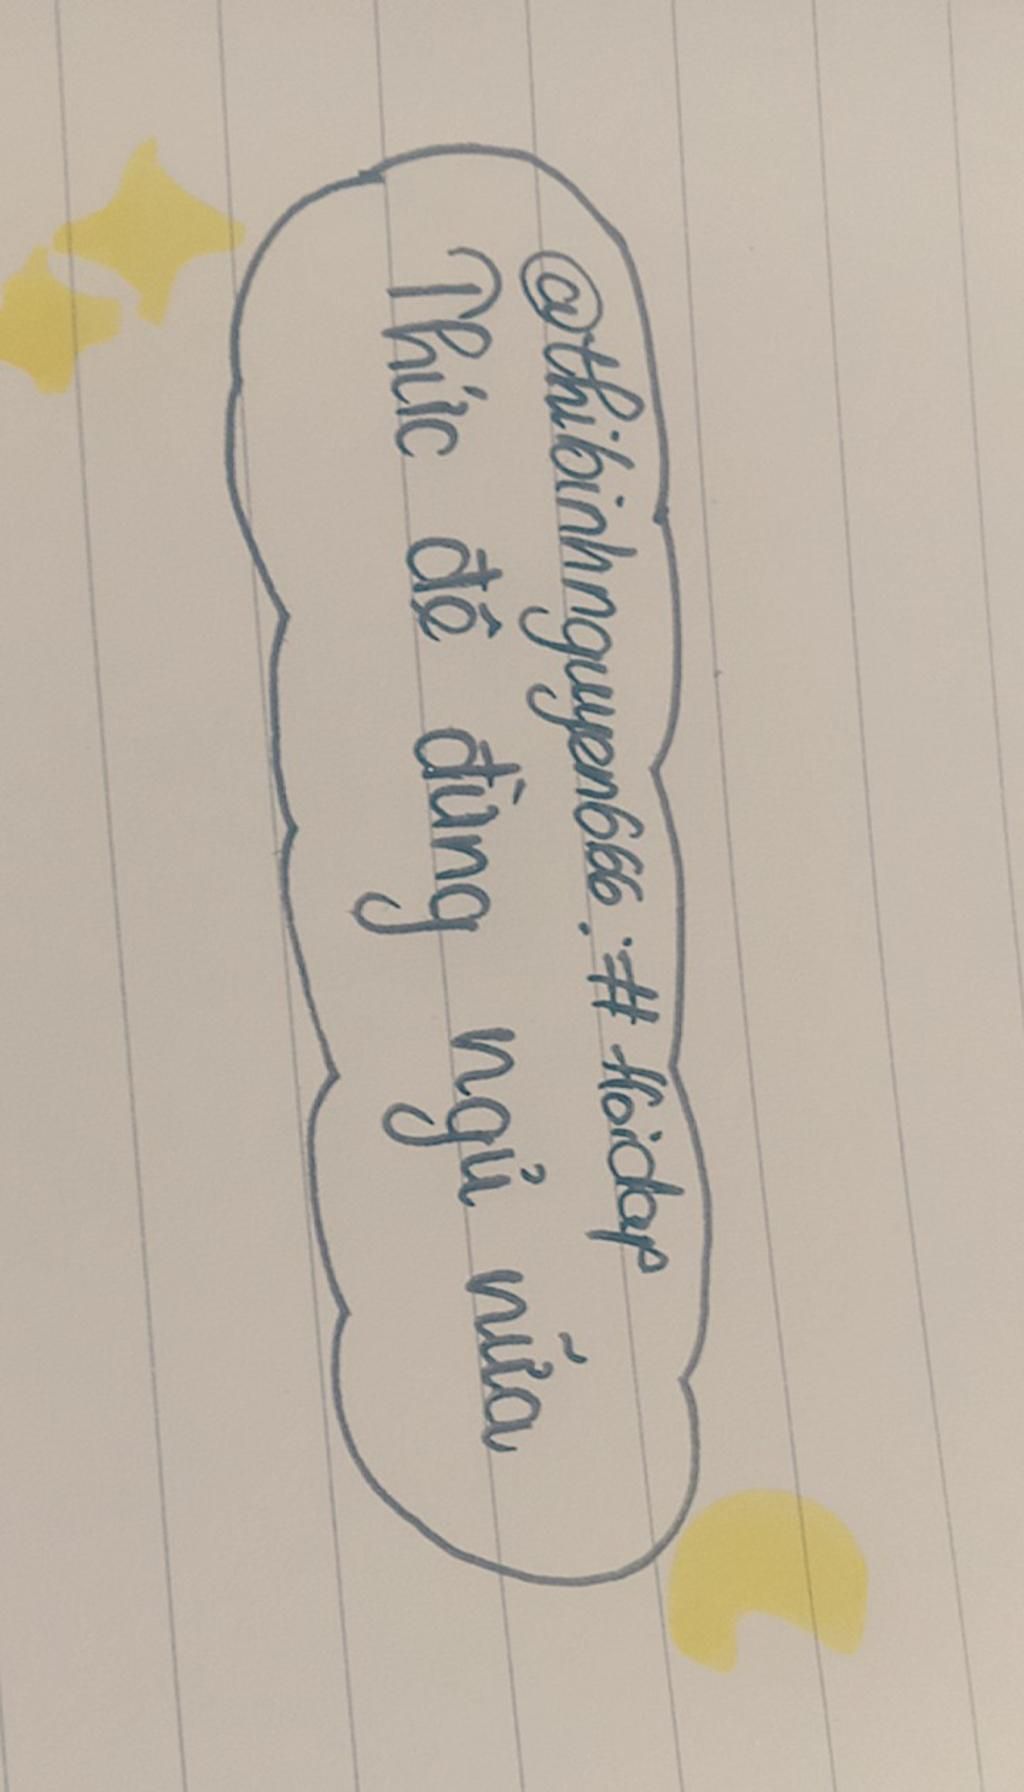 @thibinhnguyen666: #Hoidap
Thức đê đừng ngủ nữa